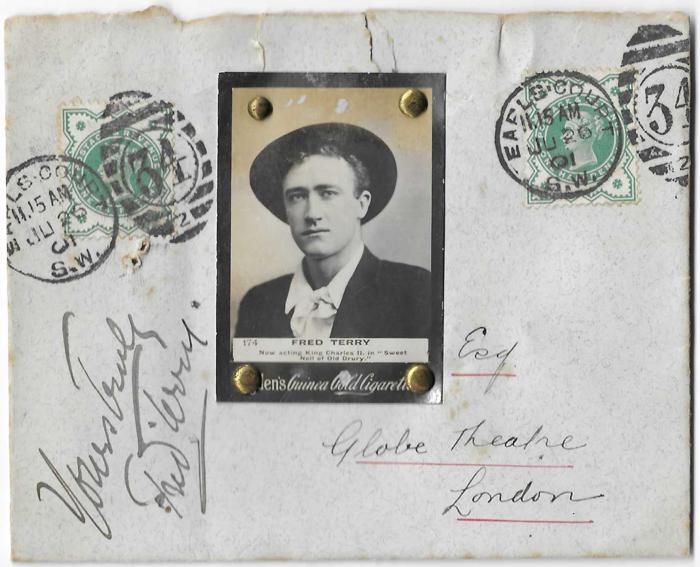 EARLS COURT
11.15 AM
JU 26
01
S.W.
34
2
EARLS·COURT
11.15 AM
JU 26
01
S.W.
34
2
174 FRED TERRY
Now acting King Charles II. in "Sweet
Nell of Old Drury."
den's Guinea Gold Cigarett
Yours truly
Fred Terry.
Esq
Globe Theatre
London